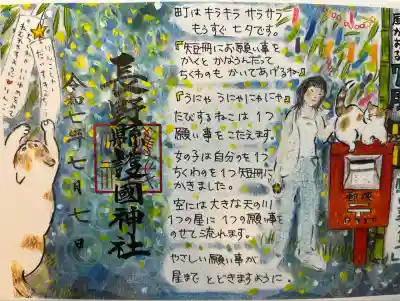 町は キラキラ サラサラ
もうすぐ 七夕です。
『短冊にお願い事を
かくと かなうんだって
ちくわのも かいてあげるね』
『うにゃ うにゃ にゃにゃ』
たびするねこは 1つ
願い事を こたえます。
女の子は自分のを 1つ
ちくわのを 1つ 短冊に
かきました。
空には 大きな 天の川
1つの星に 1つの願い事を
のせて 流れます。
やさしい 願い事が
星まで とどきますように
長野縣護國神社
令和七年七月七日
郵便